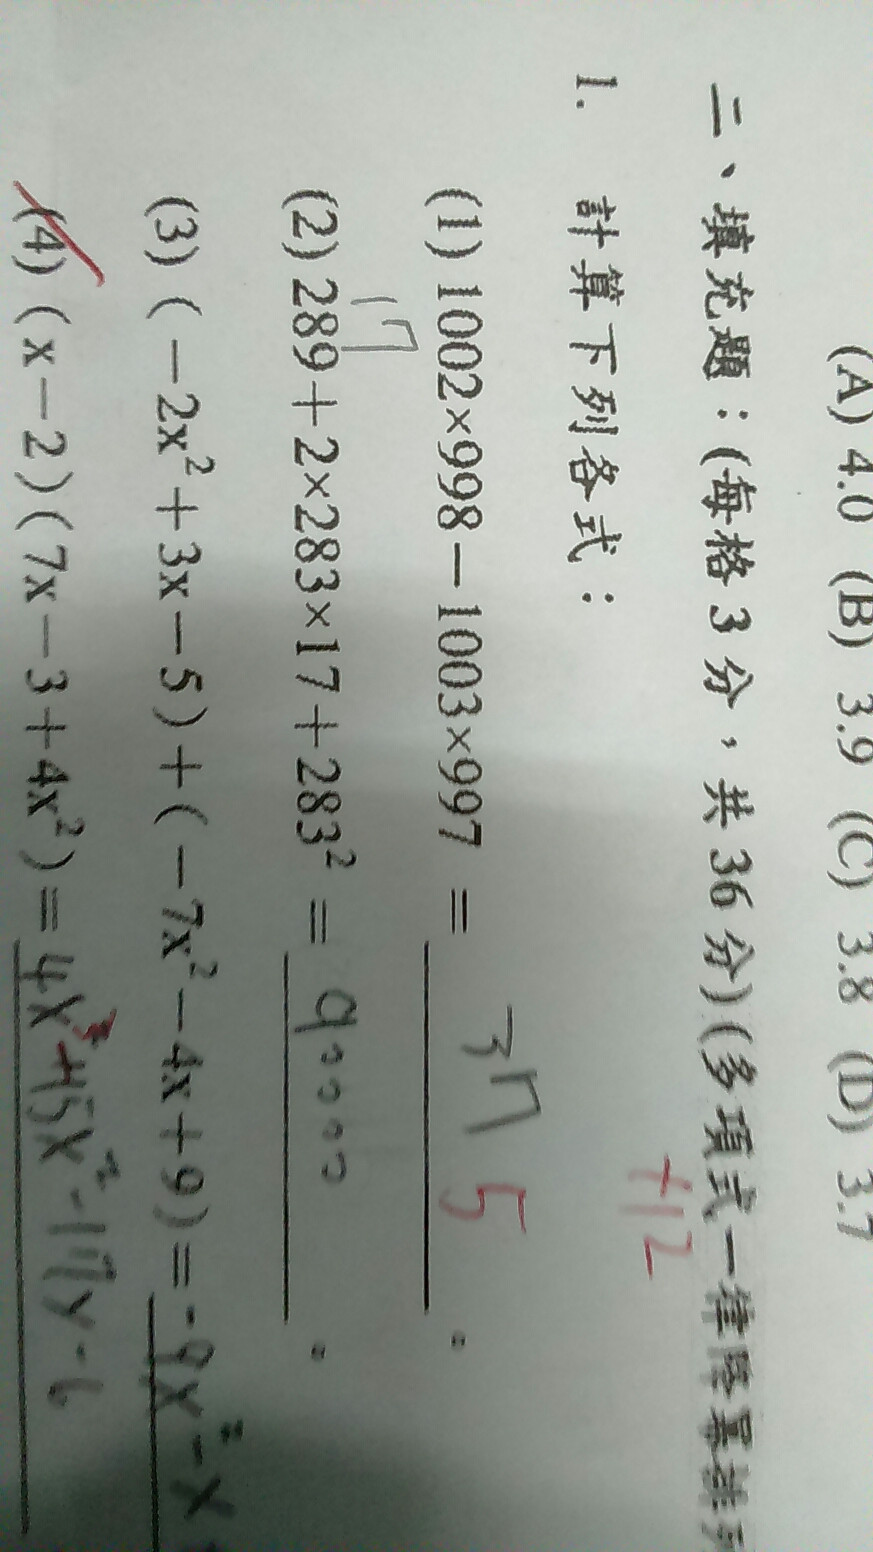 (A) 4.0 (B) 3.9 (C) 3.8 (D) 3.7
二、填充題：(每格 3 分，共 36 分)(多項式一律降冪排列
+12
1. 計算下列各式：
(1) 1002×998－1003×997 = 5 。
17
(2) 289＋2×283×17＋283² = 90000 。
(3) (－2x²＋3x－5)＋(－7x²－4x＋9) = -9x²-x
(4) (x－2)(7x－3＋4x²) =